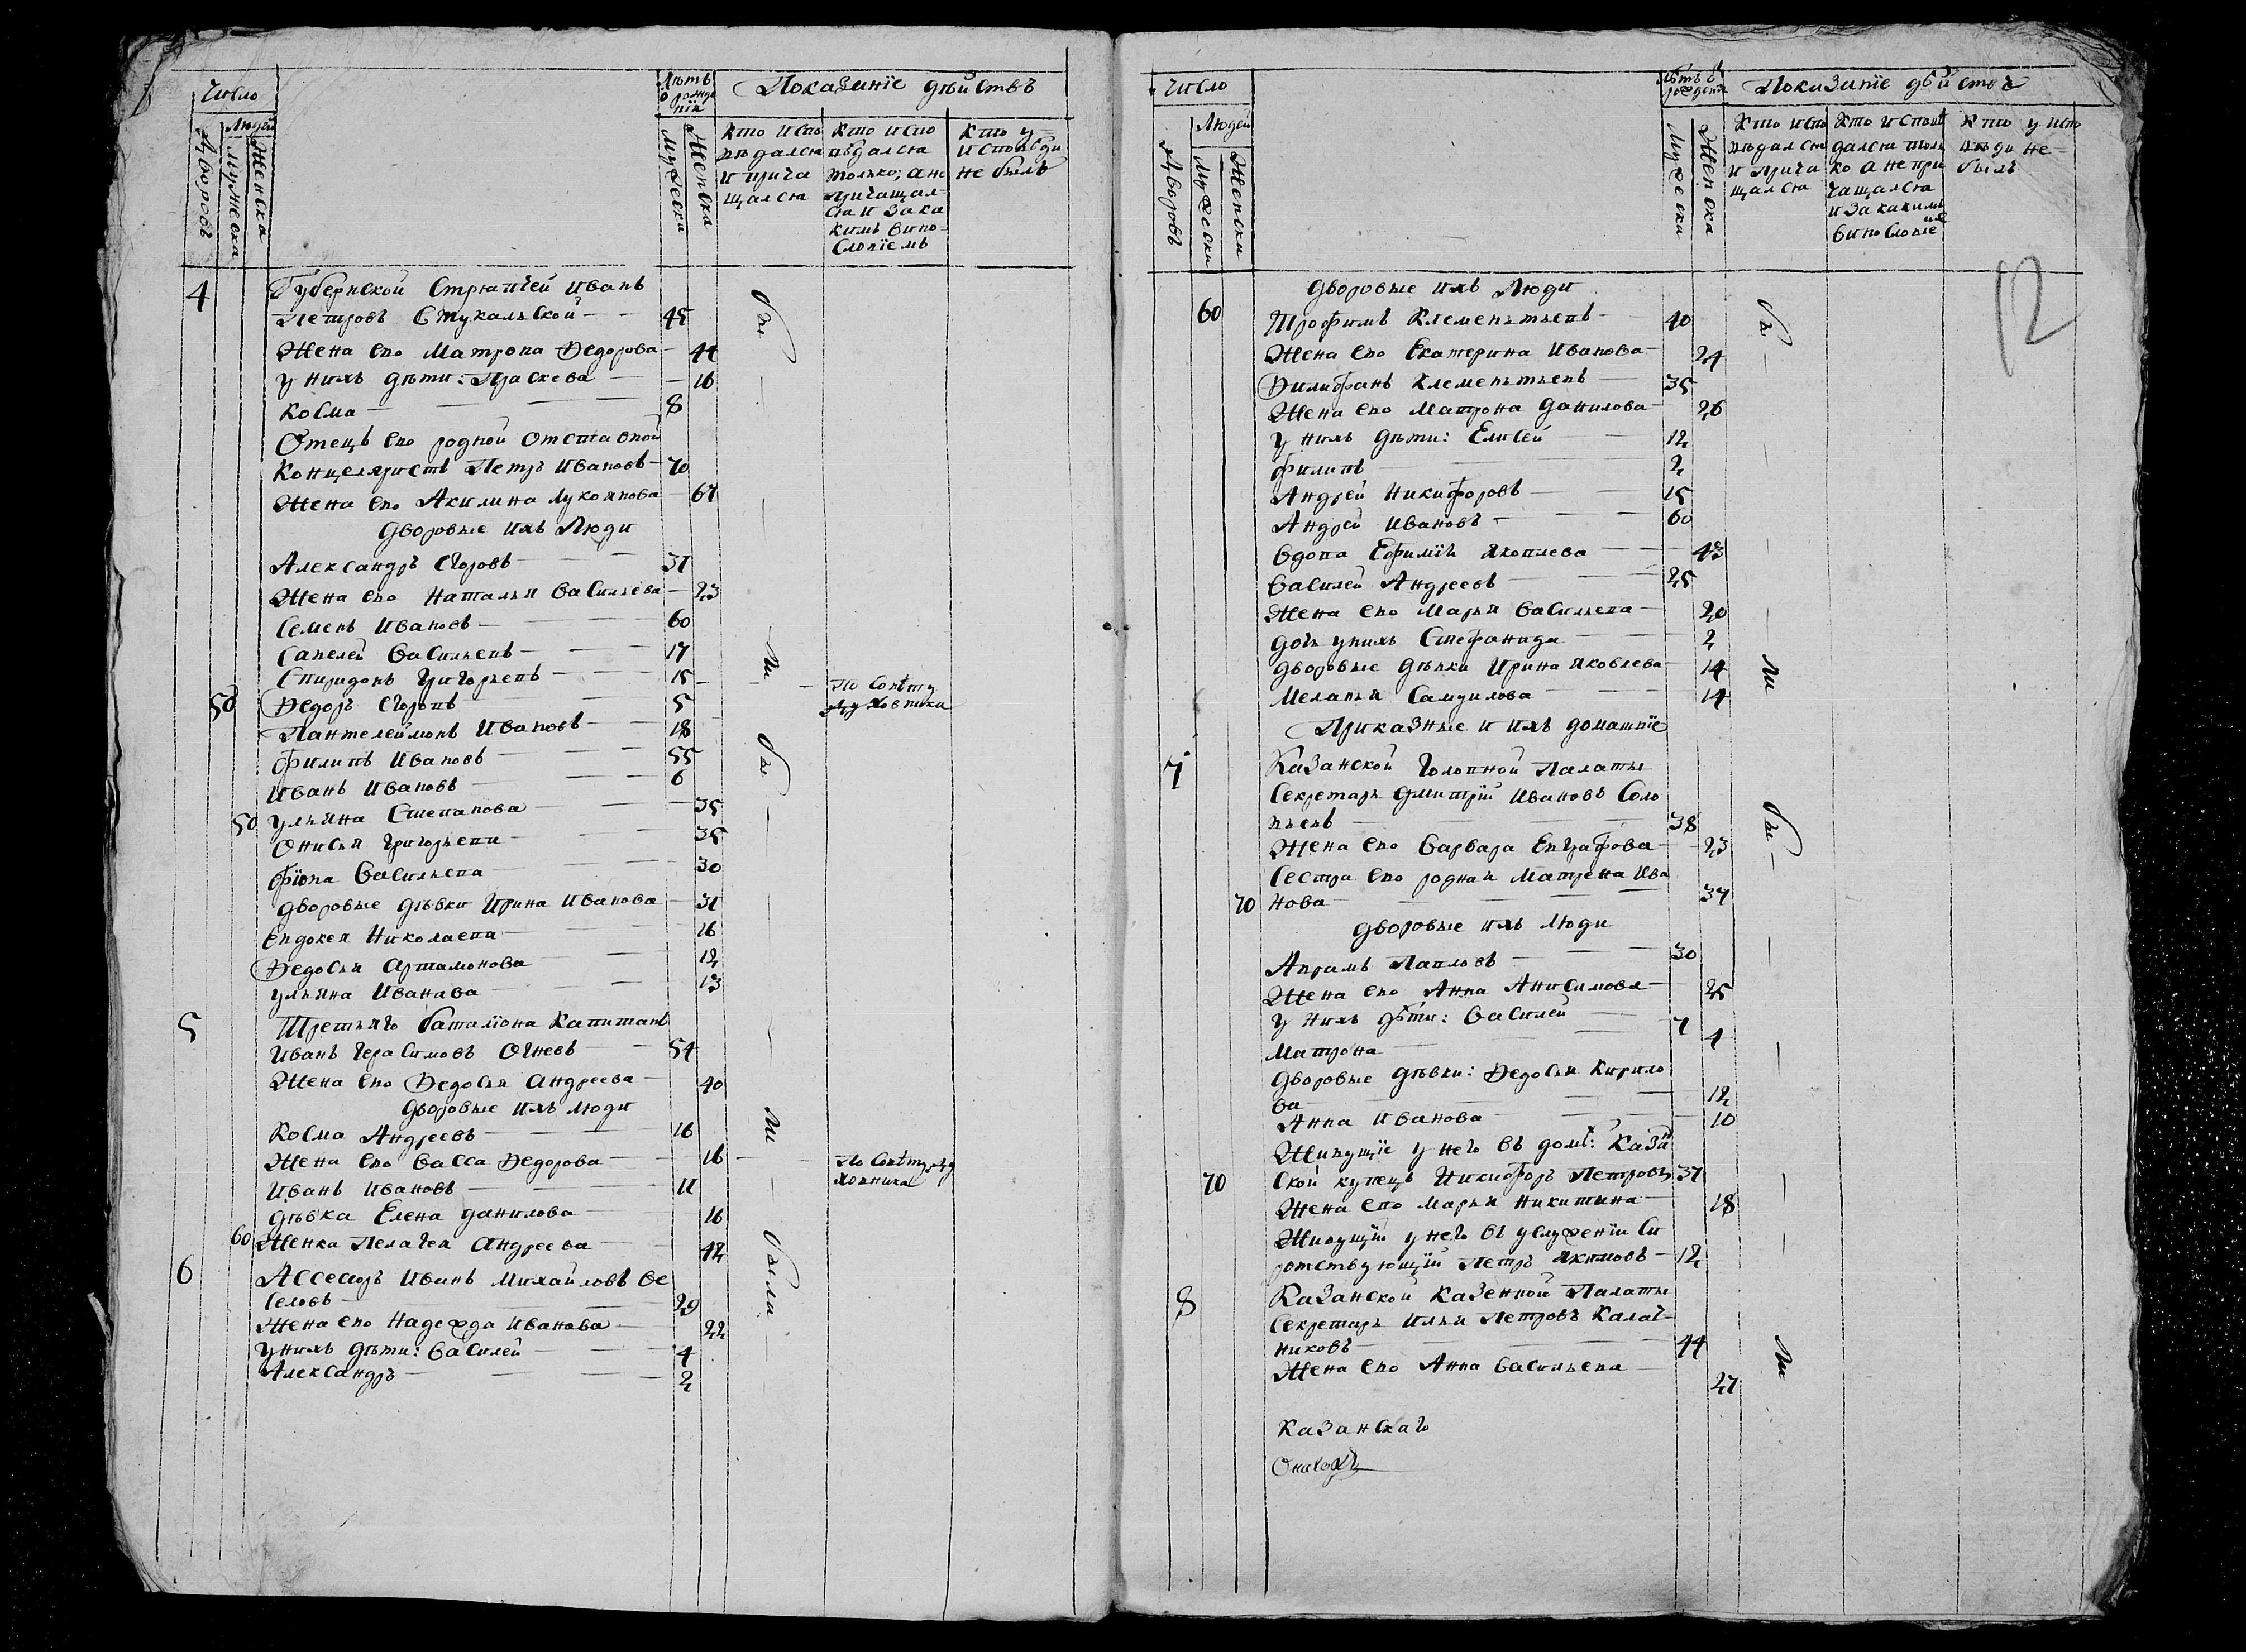 Число
Людей
Дворовъ
Мужеска
Женска
Лѣтъ
о рожде
нїя
Мужеска
Женска
Показанїе дѣйствъ
Кто испо
вѣдался
и прича
щался
Кто испо
вѣдался
только, а не
причащал-
ся и за ка
кимъ вино-
словїемъ
Кто у
исповѣди
не былъ
4
Губернской Стряпчей Иванъ
Петровъ Стукальской 45
Жена ево Матрона Ѳедорова 41
у нихъ дѣти: Праскева 16
Косма 8
Отецъ ево родной отставной
Концеляристъ Петръ Ивановъ 70
Жена ево Акилина Лукоянова 67
Дворовые ихъ Люди
Александръ Егоровъ 31
Жена ево Наталья Васильева 23
Семенъ Ивановъ 60
Савелей Васильевъ 17
Спиридонъ Григорьевъ 15
По совѣту
духовника
50 Ѳедоръ Егоровъ 5
Пантелеймонъ Ивановъ 18
Филипъ Ивановъ 55
Иванъ Ивановъ 6
50 Ульяна Степанова 35
Онисья Григорьева 35
Васильева 30
Дворовые дѣвки Ирина Иванова 31
Евдокея Николаева 16
Ѳедосья Артамонова 12
Ульяна Иванова 13
5 Третьяго баталїона Капитанъ
Иванъ Герасимовъ Огневъ 54
Жена ево Ѳедосья Андреева 40
Дворовые ихъ люди
Косма Андреевъ 16
Жена ево Васса Ѳедорова 16
По совѣту ду
ховника
Иванъ Ивановъ 11
Дѣвка Елена Данилова 16
60 Женка Пелагея Андреева 42
6 Ассесоръ Иванъ Михайловъ Ве
селовъ 29
Жена ево Надежда Иванова 22
У нихъ дѣти: Василей 4
Александръ 2
бы
ли
бы
ли
были
Число
Людей
Дворовъ
Мужески
Женски
Лѣтъ о
рожденїя
Мужески
Женска
Показанїе дѣйствъ
Кто испо
вѣдался
и прича
щался
Кто исповѣ
дался толь
ко а не при
чащался
и за какимъ
винословїе
Кто у испо
вѣди не
былъ
12
Дворовые ихъ Люди
60 Трофимъ Клементьевъ 40
Жена ево Екатерина Иванова 24
Ѳилифанъ Клементьевъ 35
Жена ево Матрона Данилова 26
у нихъ дѣти: Елисей 12
Филипъ 2
Андрей Никифоровъ 15
Андрей Ивановъ 60
Вдова Ефимїя Яковлева 43
Василей Андреевъ 25
Жена ево Марья Васильева 20
дочь у нихъ Стефанида 2
Дворовые дѣвки Ирина Яковлева 14
Меланья Самуилова 14
Приказные и ихъ домашнїе
7 Казанской Головной Палаты
Секретарь Дмитрїй Ивановъ Соло
вьевъ 38
Жена ево Варвара Евграфова 23
Сестра ево родная Матрена Ива
70 нова 37
Дворовые ихъ люди
Аврамъ Павловъ 30
Жена ево Анна Анисимова 25
У нихъ дѣти: Василей 7
Матрона 4
Дворовые дѣвки: Ѳедосья Кирило
ва 12
Анна Иванова 10
Живущїе у него въ домѣ: Казан
70 ской купецъ Никифоръ Петровъ 37
Жена ево Марья Никитина 18
Живущїй у него въ услуженїи Си
ротствующїй Петръ Якимовъ 12
8 Казанской Казенной Палаты
Секретарь Илья Петровъ Калаш-
никовъ 44
Жена ево Анна Васильева 27
бы
ли
бы
ли
Казанскаго